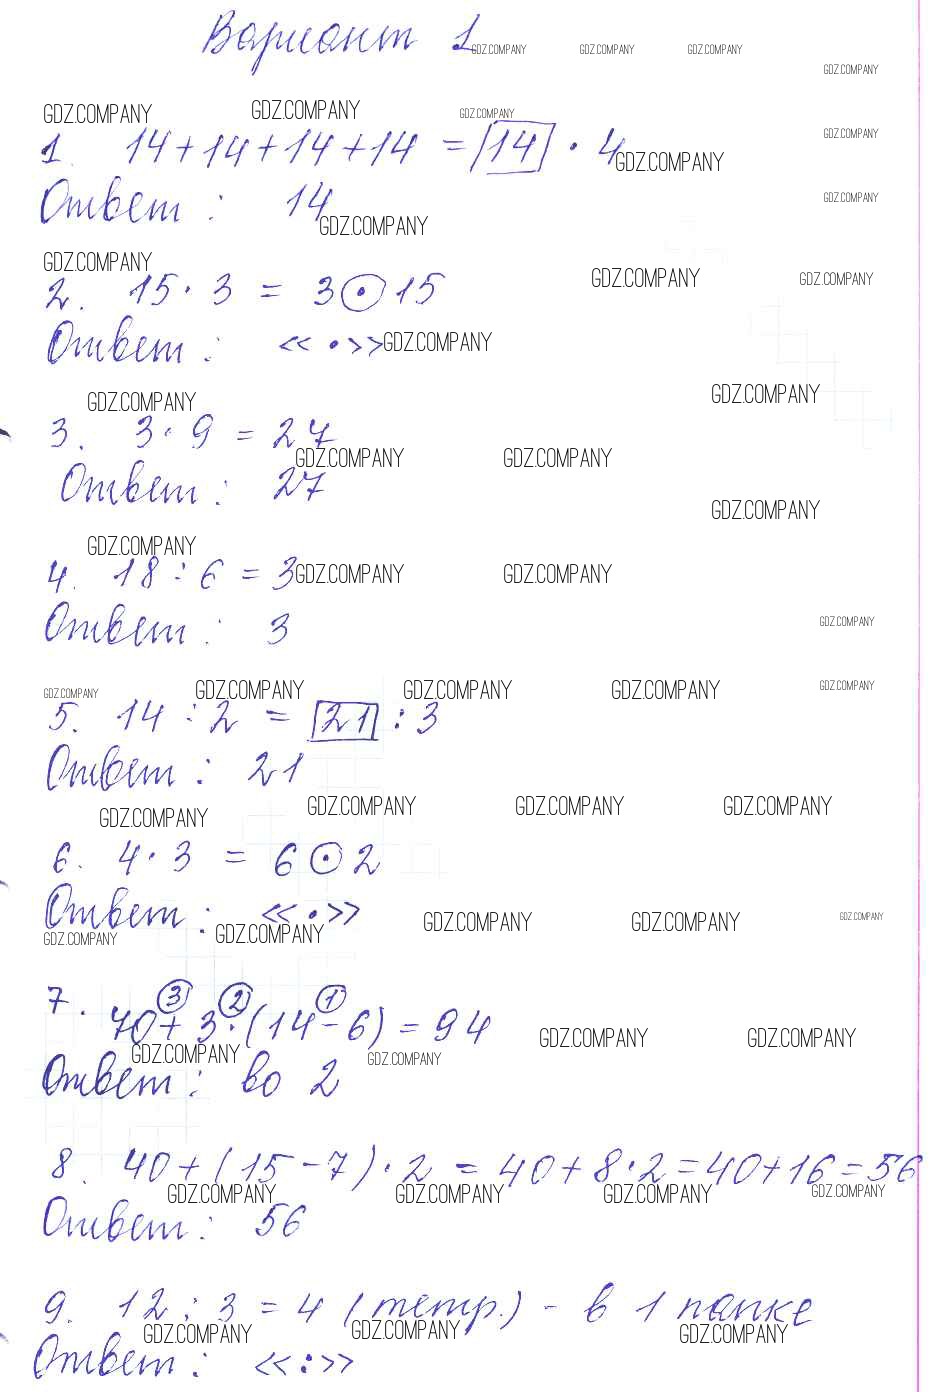 Вариант 1
GDZ.COMPANY GDZ.COMPANY GDZ.COMPANY
GDZ.COMPANY
GDZ.COMPANY GDZ.COMPANY GDZ.COMPANY
GDZ.COMPANY
1. 14+14+14+14 = 14 · 4
GDZ.COMPANY
Ответ : 14
GDZ.COMPANY
GDZ.COMPANY
GDZ.COMPANY GDZ.COMPANY GDZ.COMPANY
2. 15 · 3 = 3 · 15
Ответ : « · »
GDZ.COMPANY
GDZ.COMPANY GDZ.COMPANY
3. 3 · 9 = 27
GDZ.COMPANY GDZ.COMPANY
Ответ : 27
GDZ.COMPANY
GDZ.COMPANY
4. 18 : 6 = 3
GDZ.COMPANY GDZ.COMPANY
Ответ : 3
GDZ.COMPANY
GDZ.COMPANY GDZ.COMPANY GDZ.COMPANY GDZ.COMPANY GDZ.COMPANY
5. 14 : 2 = 21 : 3
Ответ : 21
GDZ.COMPANY GDZ.COMPANY GDZ.COMPANY GDZ.COMPANY
6. 4 · 3 = 6 · 2
Ответ : « · »
GDZ.COMPANY GDZ.COMPANY GDZ.COMPANY GDZ.COMPANY GDZ.COMPANY
3 2 1
7. 70 + 3 · (14 - 6) = 94
GDZ.COMPANY GDZ.COMPANY
GDZ.COMPANY GDZ.COMPANY
Ответ : во 2
8. 40 + (15 - 7) · 2 = 40 + 8 · 2 = 40 + 16 = 56
GDZ.COMPANY GDZ.COMPANY GDZ.COMPANY GDZ.COMPANY
Ответ : 56
9. 12 : 3 = 4 (тетр.) - в 1 папке
GDZ.COMPANY GDZ.COMPANY GDZ.COMPANY
Ответ : « : »